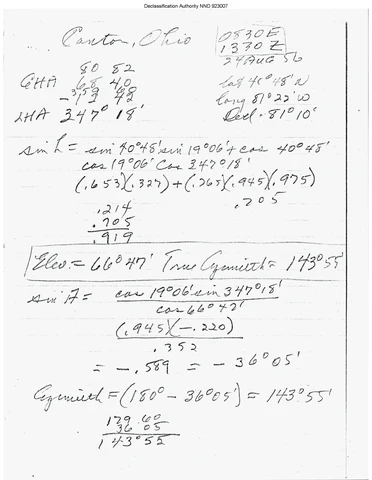 Declassification Authority NND 923007
Canton, Ohio
0830E
1330 Z
24 AUG 56
80 82
GHA 68 40
- 13 42
LHA 347° 18'
lat 40° 48' N
long 81° 22' W
Decl - 81° 10'
sin h = sin 40°48' sin 19°06' + cos 40°48'
cos 19°06' cos 347°18'
(.653)(.327) + (.765)(.945)(.975)
.214 .705
.705
.919
Elev = 66° 47' True Azimuth = 143° 55'
sin A = cos 19°06' sin 347°18'
cos 66° 47'
(.945)(-.220)
.352
= -.589 = -36° 05'
Azimuth = (180° - 36°05') = 143° 55'
179 60
36 05
143° 55